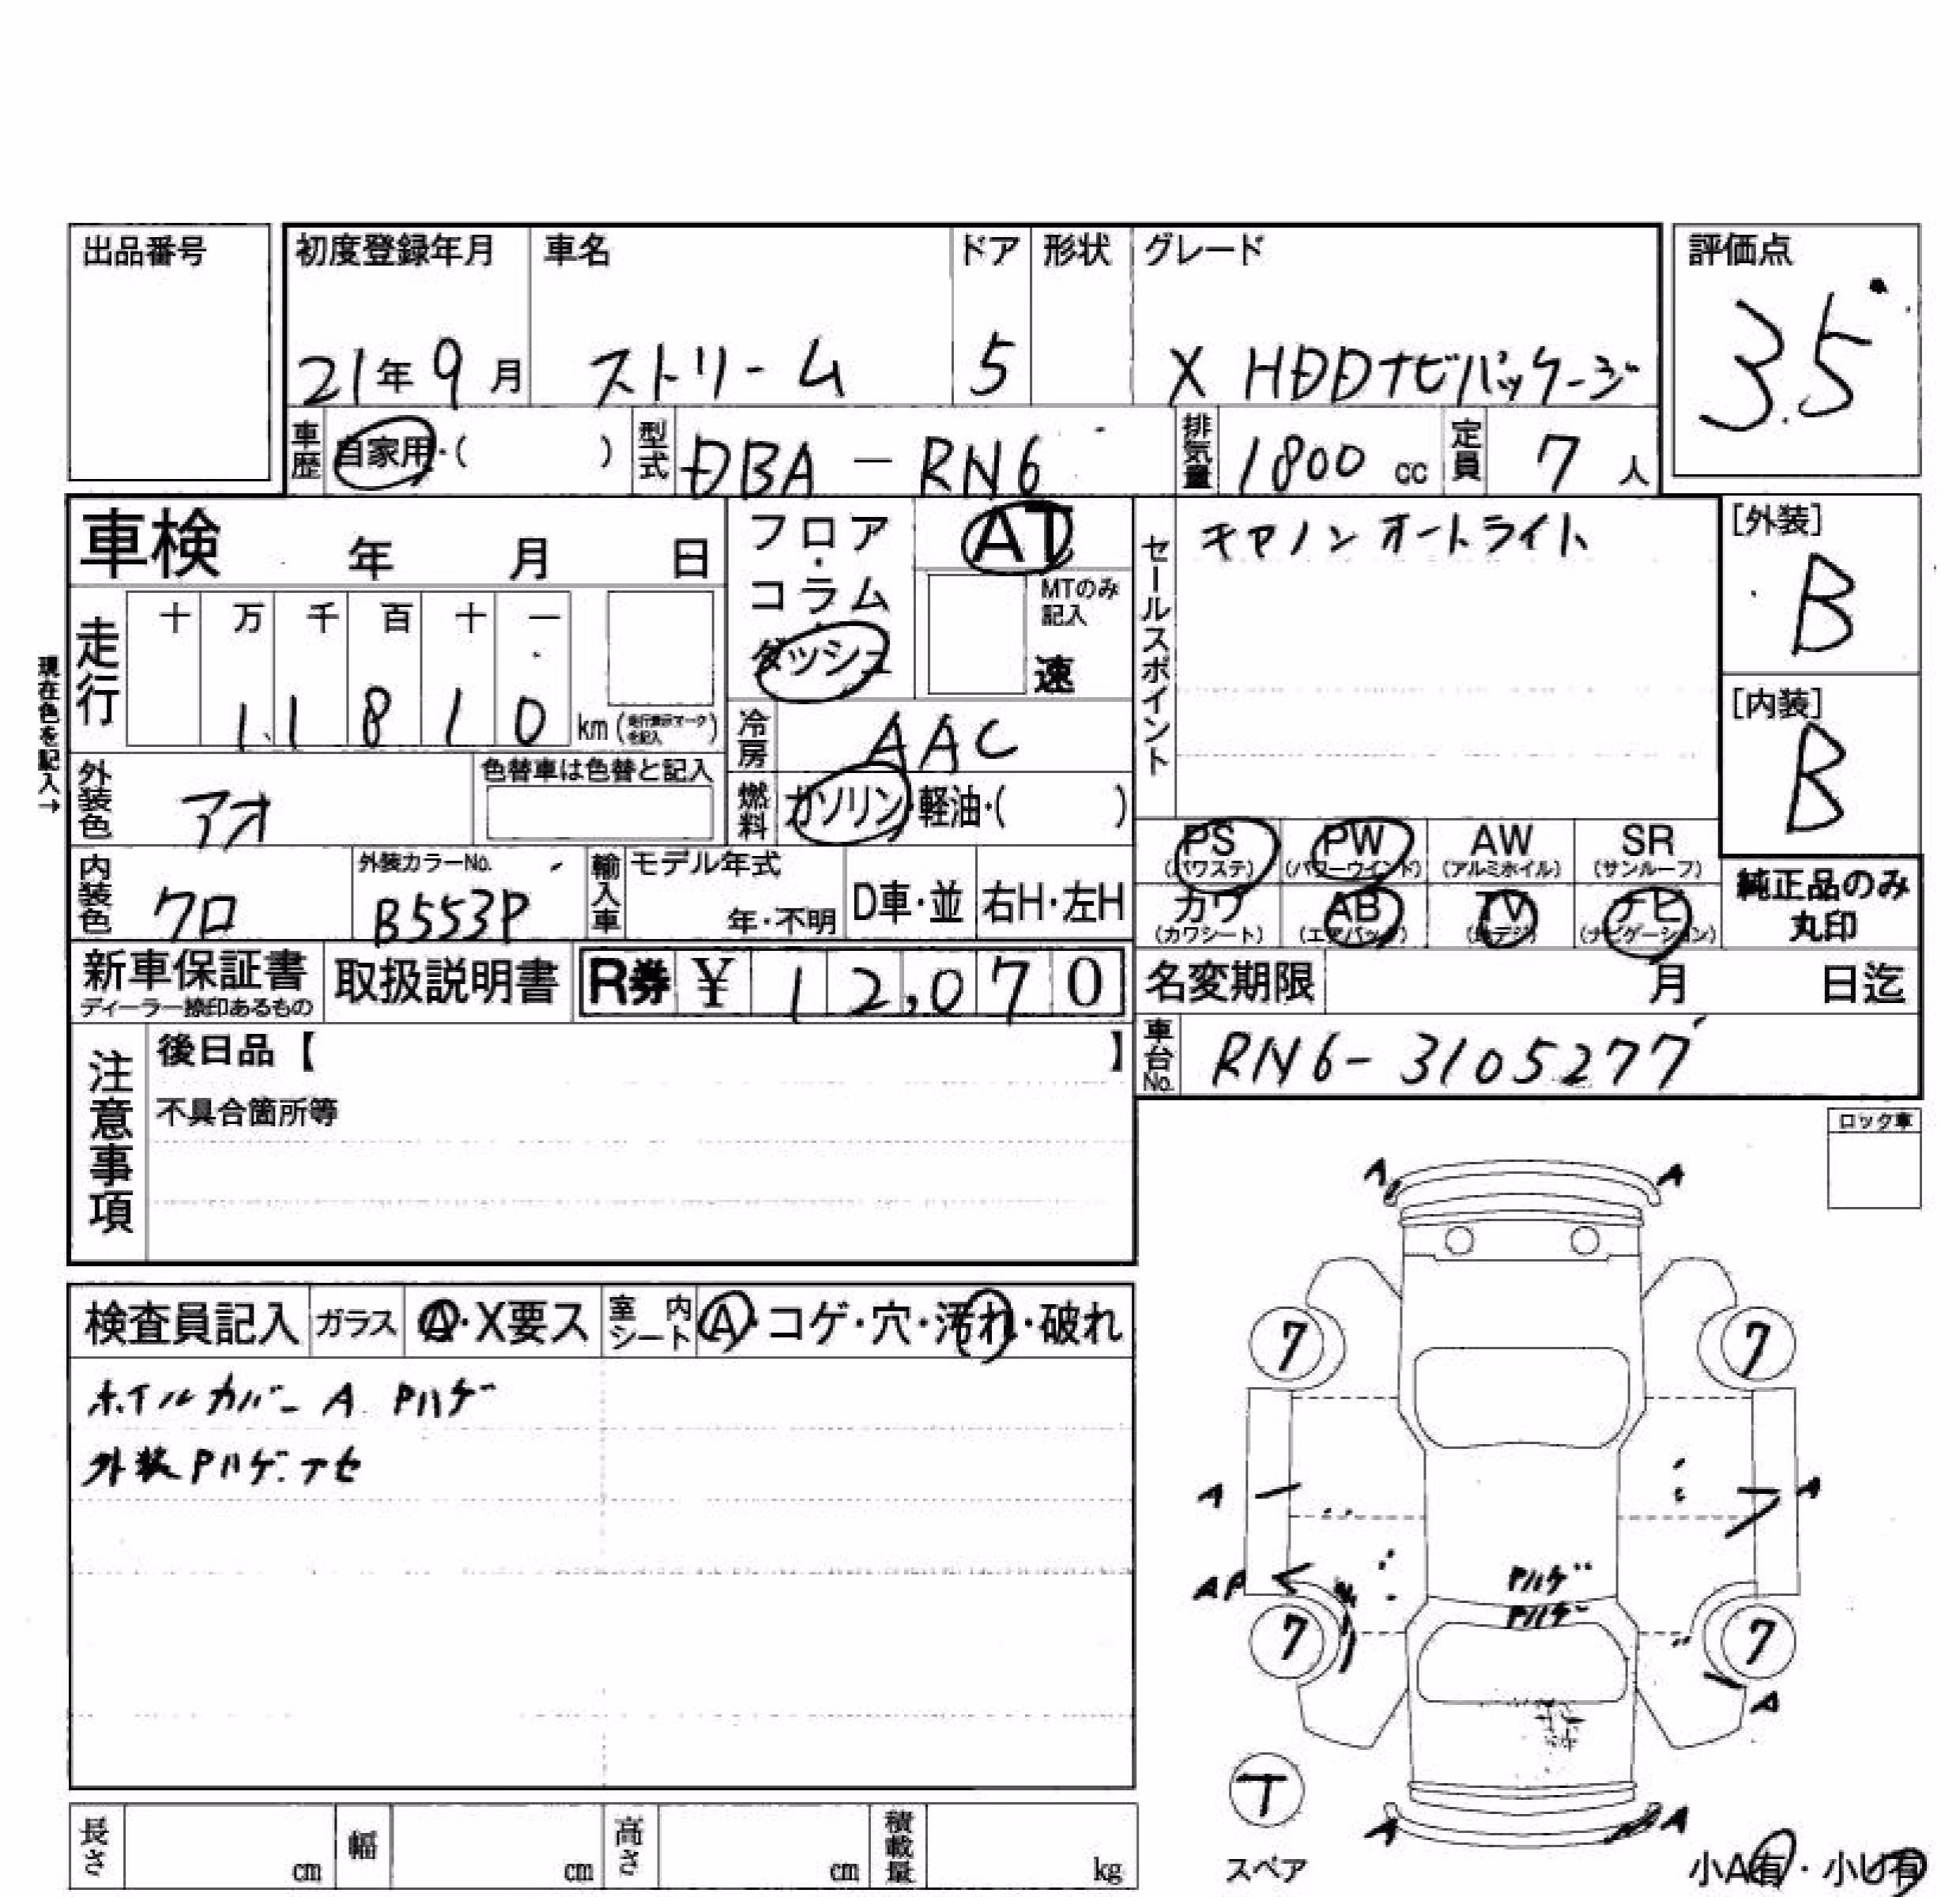 出品番号
初度登録年月 車名 ドア 形状 グレード 評価点
21年9月 ストリーム 5 X HDDナビパッケージ 3.5
車歴 自家用・( ) 型式 DBA-RN6 排気量 1800 cc 定員 7 人
車検 年 月 日
フロア・コラム・ダッシュ AT
MTのみ記入 速
セールスポイント キセノン オートライト
[外装] B
現在色を記入→
走行 十 万 千 百 十 一
1 1 8 1 0 km (走行表示マークを記入)
[内装] B
冷房 AAC
外装色 アオ 色替車は色替と記入
燃料 ガソリン・軽油・( )
PS (パワステ) PW (パワーウインド) AW (アルミホイル) SR (サンルーフ)
カワ (カワシート) AB (エアバッグ) TV (地デジ) ナビ (ナビゲーション)
純正品のみ丸印
内装色 クロ 外装カラーNo. B553P 輸入車 モデル年式 年・不明 D車・並 右H・左H
新車保証書 ディーラー捺印あるもの 取扱説明書 R券 ¥ 12,070
名変期限 月 日迄
車台No. RN6-3105277
注意事項 後日品【 】
不具合箇所等
ロック車
検査員記入 ガラス A・X要ス 室内シート A・コゲ・穴・汚れ・破れ
ホイルカバー A Pハゲ
外装Pハゲ.アセ
A A
7 7
A A
AP
Pハゲ
Pハゲ
7 7
A
T
スペア
A A
小A有・小U有
長さ cm 幅 cm 高さ cm 積載量 kg